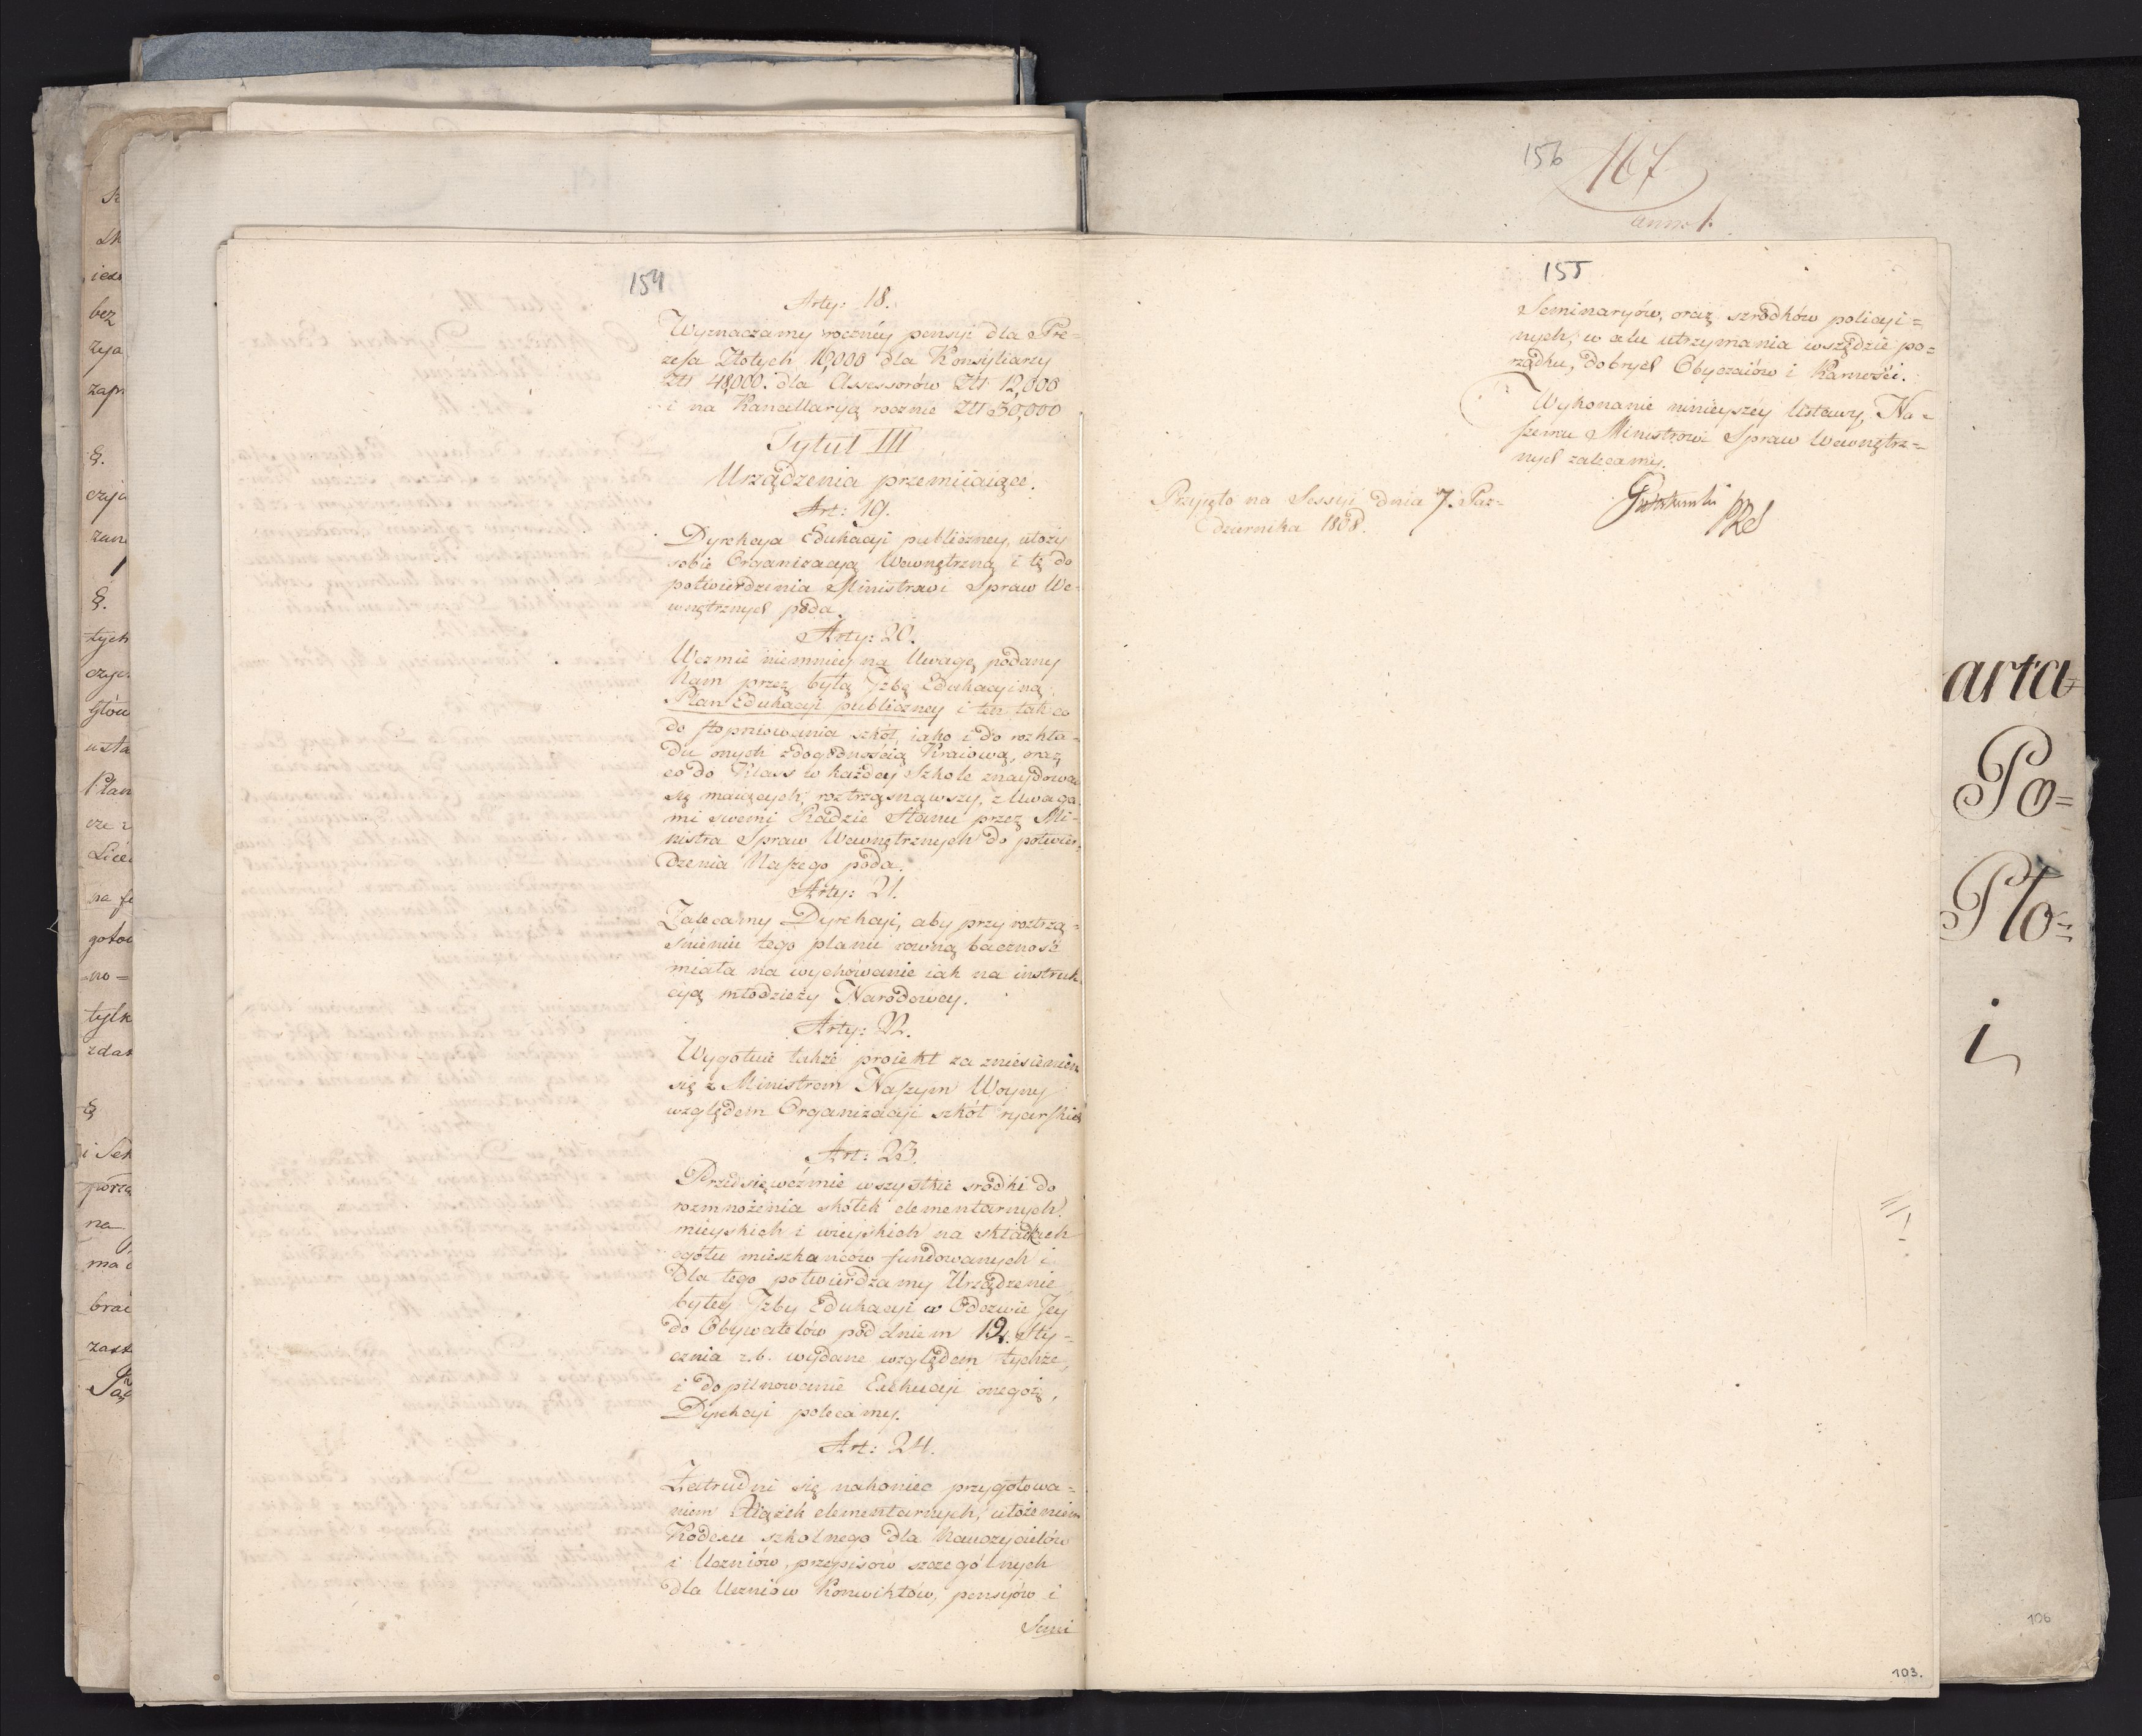 154
Arty: 18.
Wyznaczamy roczney pensyi dla Pre=
zeſa Złotych 16,000 dla Konsyliarzy
Złł 48,000. dla Assessorów Złł 12,000
i na Kancellaryą rocznie Złł 50,000
Tytuł III
Urządzenia przemiiaiące.
Art: 19.
Dyrekcya Edukacyi publiczney, ułoży
sobie Organizacyą Wewnętrzną i tę do
potwierdzenia Ministrowi Spraw We-
wnętrznych poda.
Arty: 20.
Wezmie niemniey na Uwagę podany
Nam przez byłą Izbę Edukacyiną
Plan Edukacyi publiczney i ten tak co
do ſtopniowania szkół, iako i do rozkła-
du onych z dogodnością Kraiową, oraz
co do Klass w każdey Szkole znaydować
się maiących, roztrząsnąwszy, z Uwaga-
mi swemi Radzie Stanu przez Mi-
nistra Spraw Wewnętrznych do potwier-
dzenia Naſzego poda.
Arty: 21.
Zalecamy Dyrekcyi, aby przy roztrzą-
śnieniu tego planu rowną baczność
miała na wychowanie iak na instruk-
cyą młodzieży Narodowey.
Arty: 22.
Wygotuie także proiekt za zniesieniem
się z Ministrem Naſzym Woyny
względem Organizacyi szkół rycerſkich
Art: 23.
Przedsięweźmie wszystkie srodki do
rozmnożenia szkółek elementarnych
mieyskich i wieyskich na składkach
ogółu mieszkanców fundowanych i
dla tego potwierdzamy Urządzenie
byłey Izby Edukacyi w Odezwie Jey
do Obywatelów pod dniem 12. Sty-
cznia r. b. wydane względem tychże,
i dopilnowanie Exekucyi onegoż,
Dyrekcyi polecamy.
Art: 24.
Zatrudni się nakoniec przygotowa=
niem Xiążek elementarnych, ułożeniem
Kodexu szkolnego dla Nauczycielów
i Uczniów, przepisów szczególnych
dla Uczniów Konwiktów, pensyów i
Semi
156
167
155
Seminaryów, oraz szrodków policyi=
nych, w celu utrzymania wszędzie po=
rządku, dobrych Obyczaiów i Karności.
Wykonanie ninieyszey Ustawy, Na-
ſzemu Ministrowi Spraw Wewnętrz=
nych zalecamy.
Przyięto na Sessyi dnia 7. Paz-
dziernika 1808.
103.
arta
Po=
Pło=
i
106